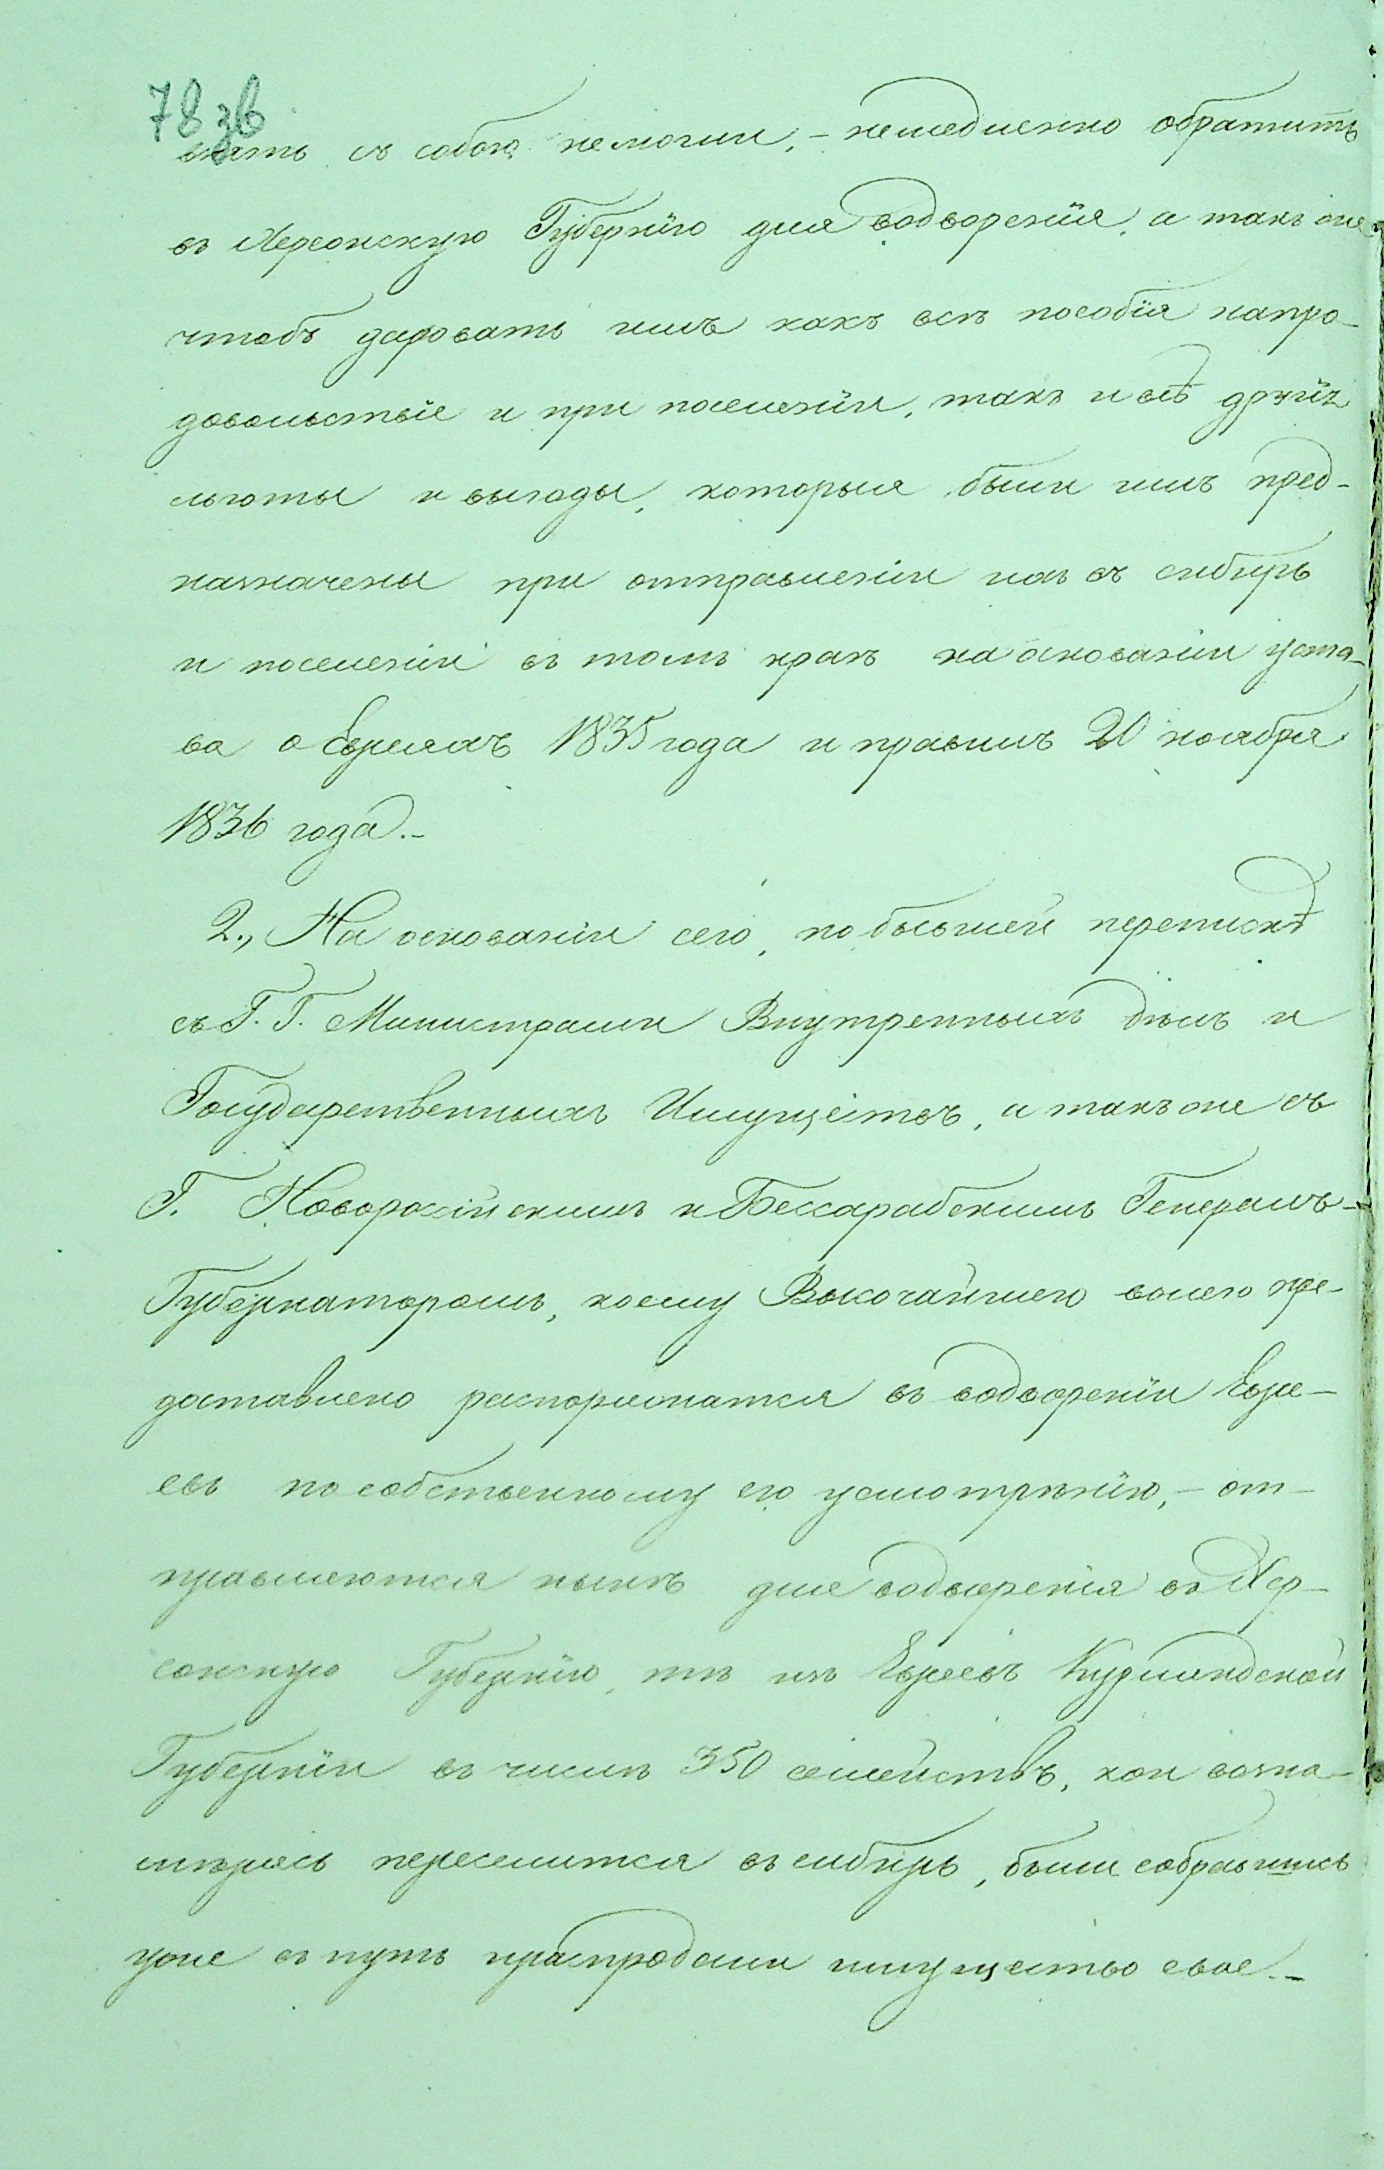 78 зв
взять съ собою немогли, - немедленно обратить
въ Херсонскую Губернію для водворенія, а такъ же
чтобъ даровать имъ какъ всѣ пособія напро-
довольствіе и при поселеніи, такъ и всѣ другія
льготы и выгоды, которыя были имъ пред-
назначены при отправленіи ихъ въ сибирь
и поселеніи въ томъ краѣ на основаніи уста-
ва о Евреяхъ 1835 года и правилъ 20 ноября
1836 года.-
2., На основаніи сего, по бывшей перепискѣ
съ Г. Г. Министрами Внутреннихъ дѣлъ и
Государственныхъ Имуществъ, а такъ же съ
Г. Новороссійскимъ и Бессарабскимъ Генералъ-
Губернаторомъ, коему Высочайшею волею пре-
доставлено распоряжатся въ водвореніи Евре-
евъ по собственному его усмотрѣнію, - от-
правляются нынѣ для водворенія въ Хер-
сонскую Губернію, тѣ изъ Евреевъ Курляндской
Губерніи въ числѣ 350 семействъ, кои возна-
мѣрясь переселится въ сибирь, были собравшись
уже въ путь и распродали имущество свое.-